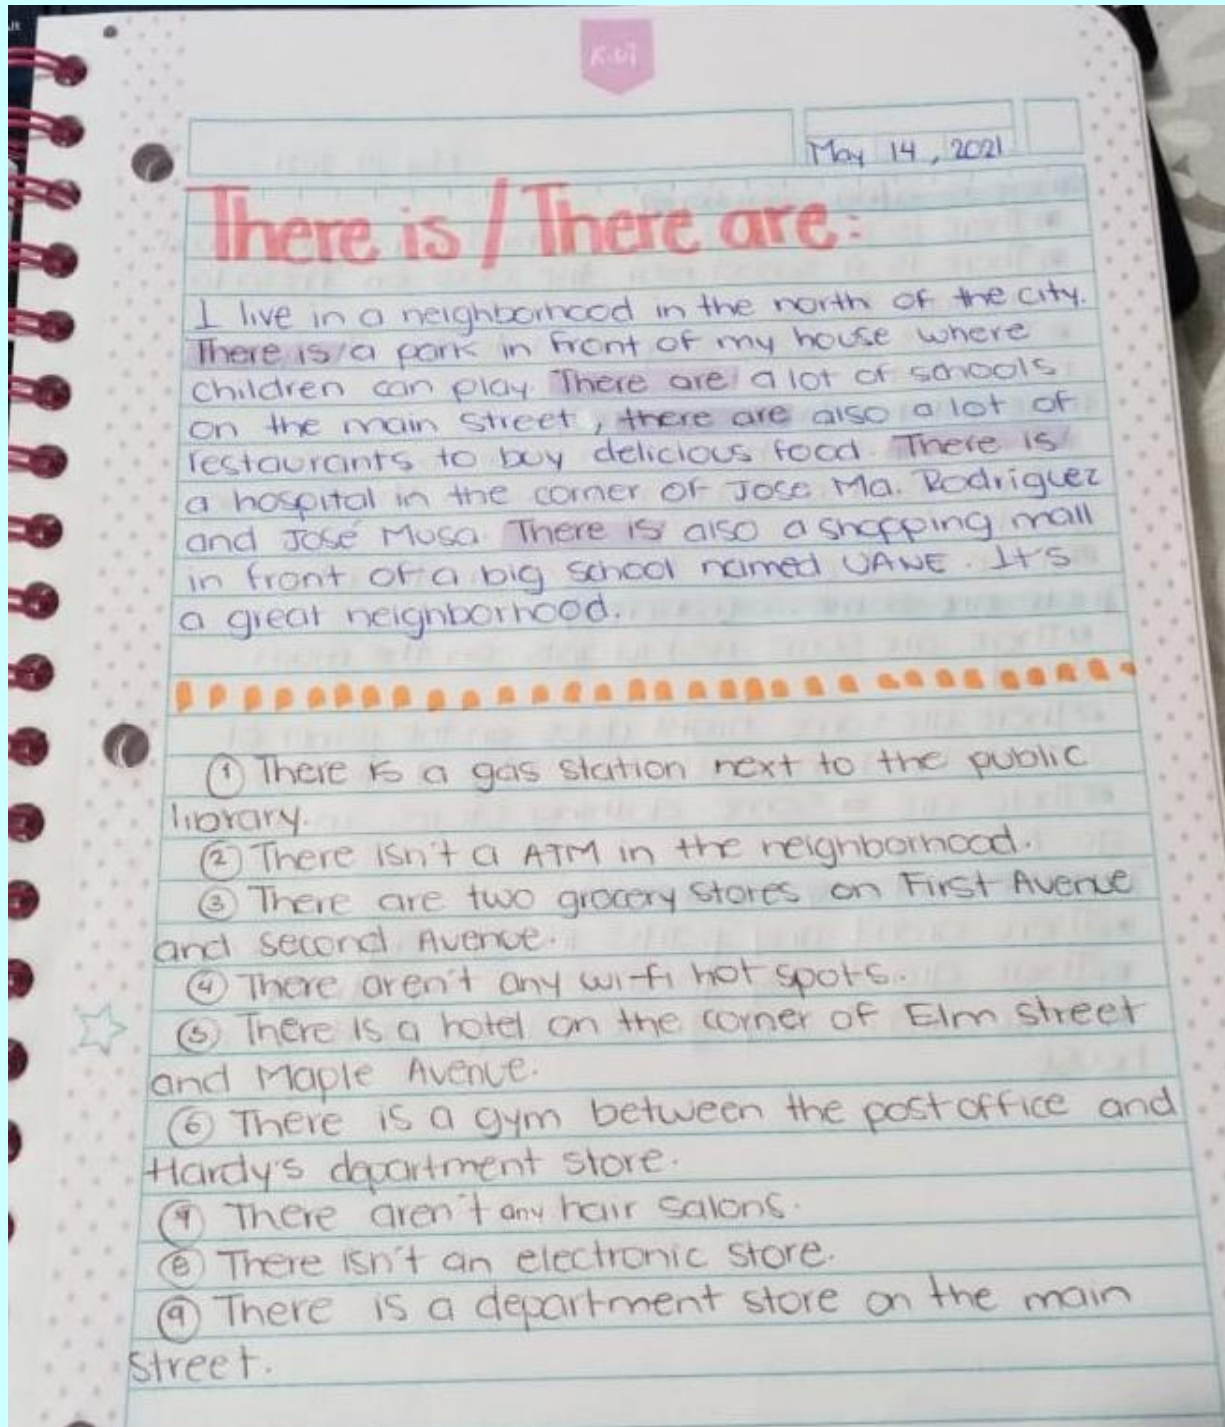 K-Vi
May 14, 2021
There is / There are:
I live in a neighborhood in the north of the city.
There is a park in front of my house where
children can play. There are a lot of schools
on the main street, there are also a lot of
restaurants to buy delicious food. There is
a hospital in the corner of Jose Ma. Rodriguez
and José Musa. There is also a shopping mall
in front of a big school named UANE. It's
a great neighborhood.
① There is a gas station next to the public
library.
② There isn't a ATM in the neighborhood.
③ There are two grocery stores on First Avenue
and second Avenue.
④ There aren't any wi-fi hot spots.
⑤ There is a hotel on the corner of Elm street
and Maple Avenue.
⑥ There is a gym between the post office and
Hardy's department store.
⑦ There aren't any hair salons.
⑧ There isn't an electronic store.
⑨ There is a department store on the main
street.